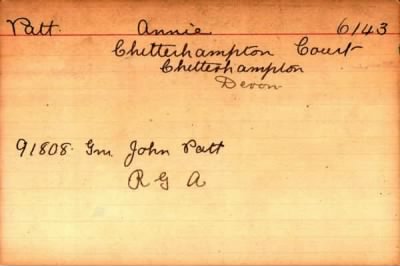 Patt. Annie 6143
Chitterhampton Court
Chitterhampton
Devon
91808. Gnr John Patt
R G A